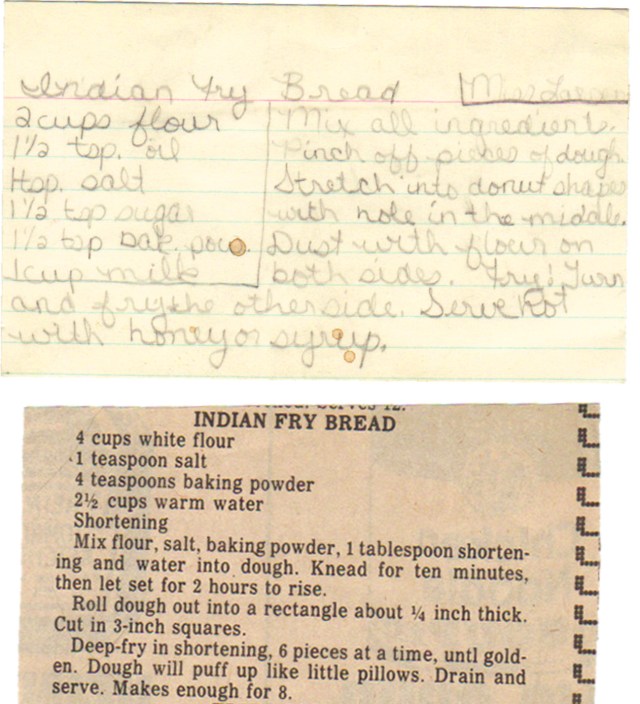 Indian Fry Bread
2 cups flour
1½ tsp. oil
tsp. salt
1½ tsp sugar
1½ tsp bak. pow.
1 cup milk
Mix all ingredients.
Pinch off pieces of dough
Stretch into donut shapes
with hole in the middle.
Dust with flour on
both sides. Fry! Turn
and fry the other side. Serve hot
with honey or syrup.
Serves 12.
INDIAN FRY BREAD
4 cups white flour
1 teaspoon salt
4 teaspoons baking powder
2½ cups warm water
Shortening
Mix flour, salt, baking powder, 1 tablespoon shorten-
ing and water into dough. Knead for ten minutes,
then let set for 2 hours to rise.
Roll dough out into a rectangle about ¼ inch thick.
Cut in 3-inch squares.
Deep-fry in shortening, 6 pieces at a time, untl gold-
en. Dough will puff up like little pillows. Drain and
serve. Makes enough for 8.